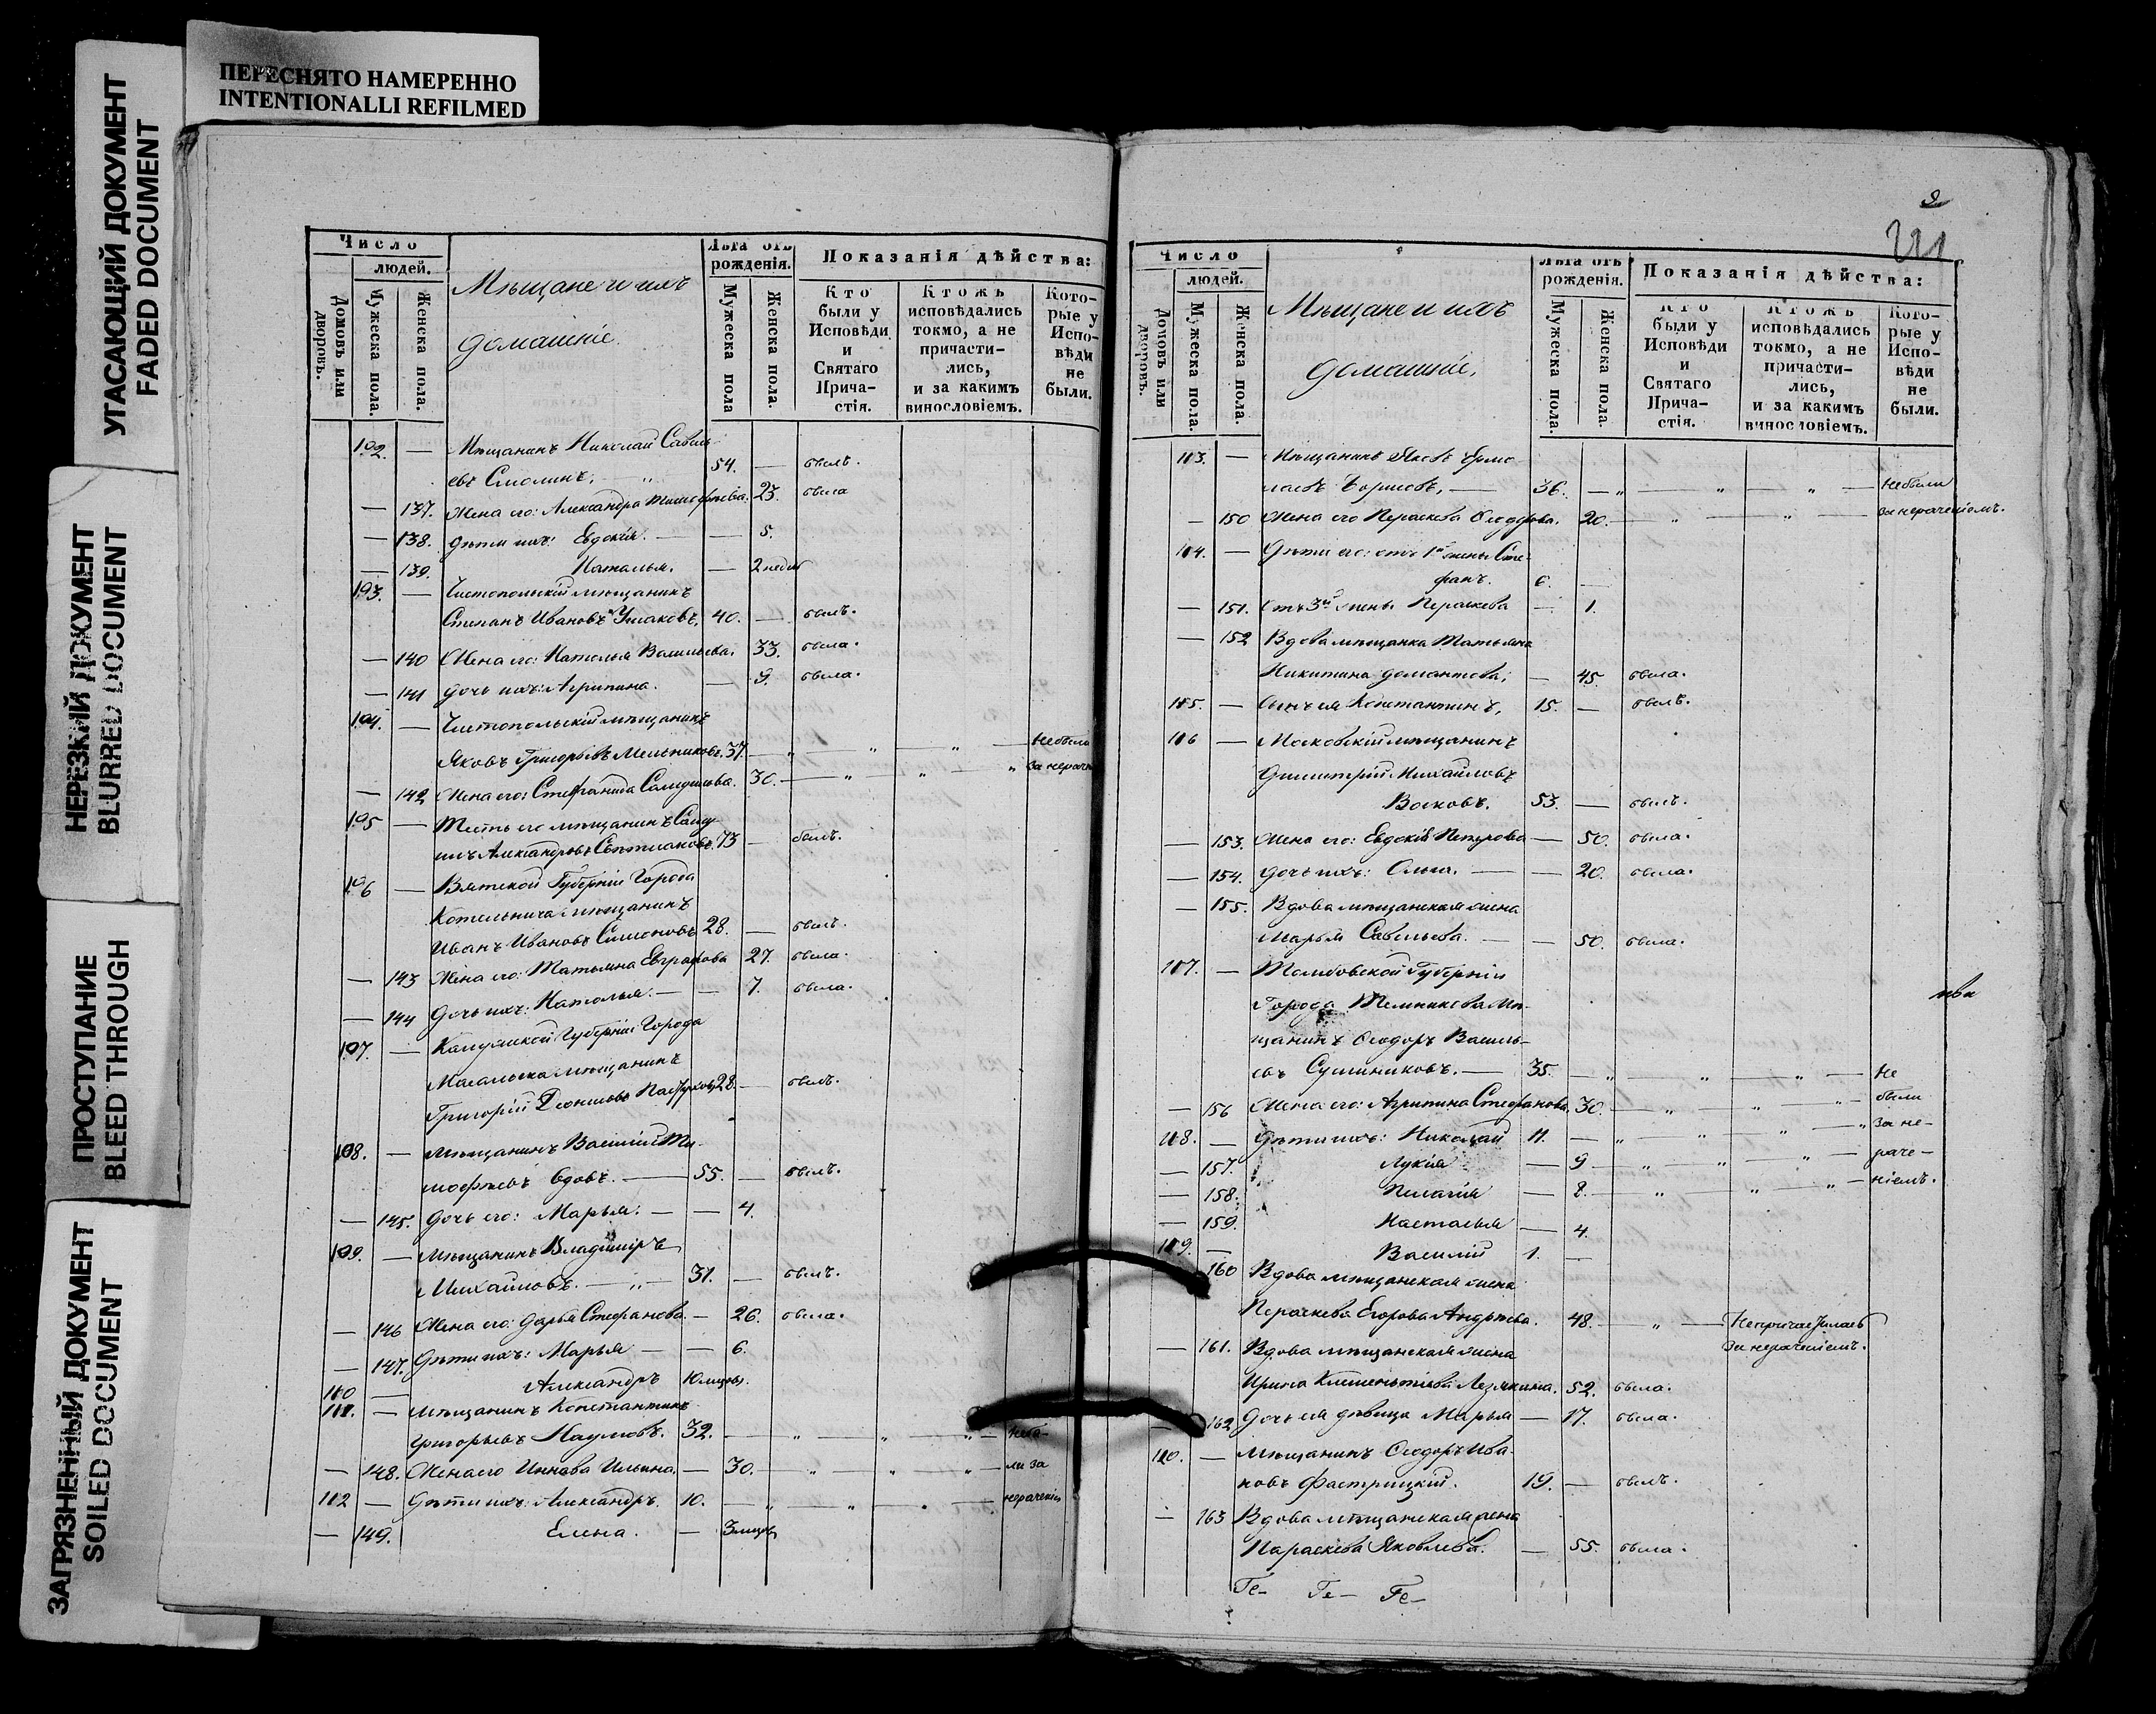 ПЕРЕСНЯТО НАМЕРЕННО
INTENTIONALLI REFILMED
УГАСАЮЩИЙ ДОКУМЕНТ
FADED DOCUMENT
НЕРЕЗКИЙ ДОКУМЕНТ
BLURRED DOCUMENT
ПРОСТУПАНИЕ
BLEED THROUGH
ЗАГРЯЗНЕННЫЙ ДОКУМЕНТ
SOILED DOCUMENT
Число
людей.
Домовъ или дворовъ.
Мужеска пола.
Женска пола.
Мѣщане и ихъ
домашніе.
Лѣта отъ рожденія.
Мужеска пола
Женска пола.
Показанія дѣйства:
Кто были у Исповѣди и Святаго Прича-стія.
Ктожъ исповѣдались токмо, а не причасти-лись, и за какимъ винословіемъ.
Кото-рые у Испо-вѣди не были.
102. — Мѣщанинъ Николай Савель-
евъ Смолинъ, 54. — былъ.
— 137. Жена его: Александра Тимофѣева. 23. была
— 138. Дѣти ихъ: Евдокія. — — 5.
— 139. Наталья. — 2 недѣл
103. — Чистопольскій мѣщанинъ
Степанъ Ивановъ Ушаковъ, 40. — былъ.
— 140 Жена его: Наталья Васильева. 33. была.
— 141 Дочь ихъ: Агрипина. — 9. была.
104. — Чистопольскій мѣщанинъ
Яковъ Григорьевъ Мельниковъ. 37. — „ — „ — „ — Небыли
— 142 Жена его: Стефанида 30. — „ — „ — „ за нераче
105 — Тесть его мѣщанинъ
Александровъ 73 — былъ.
106 — Вятской Губерніи Города
Котельнича мѣщанинъ
Иванъ Ивановъ Симоновъ 28. — былъ.
— 143 Жена его: Татьяна Евграфова 27. была.
— 144 Дочь ихъ: Наталья. — — 7. была.
107. — Калужской Губерніи Города
Масальска мѣщанинъ
Григорій 28. — былъ.
108. — Мѣщанинъ Василій Ти-
мофѣевъ вдовъ. — 55. — былъ.
— 145. Дочь его: Марья. — — 4.
109. — Мѣщанинъ Владиміръ
Михайловъ. — „ — 31. — былъ.
— 146 Жена его: Дарья Стефанова. — 26. была.
— 147. Дѣти ихъ: Марья — — 6.
110 — Александръ 10 мцовъ.
111. — Мѣщанинъ Константинъ
Григорьевъ Наумовъ. 32. — „ — „ — „ — Небы-
— 148. Жена его Ильина. — 30. — „ — „ — „ — ли за
112 — Дѣти ихъ: Александръ. 10. — „ — „ — нераченіе
— 149. Елена. — 3 мцов
9
221
Число
людей.
Домовъ или дворовъ.
Мужеска пола.
Женска пола.
Мѣщане и ихъ
домашніе,
Лѣта отъ рожденія.
Мужеска пола.
Женска пола.
Показанія дѣйства:
Кто были у Исповѣди и Святаго Прича-стія.
Ктожъ исповѣдались токмо, а не причасти-лись, и за какимъ винословіемъ.
Кото-рые у Испо-вѣди не были.
113. — Мѣщанинъ Яковъ Ермо-
лаевъ Борисовъ, — 36. — „ — „ — „ — Небыли
— 150 Жена его Параскева Ѳеодорова. 20. — „ — „ — за нераченіемъ.
114. — Дѣти его: отъ 1й жены Сте-
фанъ. 6. —
— 151. Отъ 3й жены Параскева — 1.
— 152 Вдова мѣщанка Татьяна
Никитина 45. была.
115. — Сынъ ея Константинъ, 15. — былъ.
116 — Московскій мѣщанинъ
Димитрій Михайловъ
53. — былъ.
— 153. Жена его: Евдокія Петрова — 50. была.
— 154. Дочь ихъ: Ольга. — — 20. была.
— 155. Вдова мѣщанская жена
Марья Савельева. — — 50. была.
117. — Тамбовской Губерніи
Города Темникова Мѣ-
щанинъ Ѳеодоръ Василь-
евъ Сушниковъ. — 35. — „ — „ — „ — Не
— 156 Жена его: Агрипина Стефанова. 30. — „ — „ — „ — были
118. — Дѣти ихъ: Николай 11. — „ — „ — „ — „ за не-
— 157. Лукія — 9 — „ — „ — „ — раче-
— 158. Пелагія — 8. — „ — „ — „ — ніемъ.
— 159. Настасья — 4.
119. — Василій 1. —
160 Вдова мѣщанская жена
Параскева Егорова Андрѣева. 48. — „ — Непричастилась
за нераченіемъ.
— 161. Вдова мѣщанская жена
Ирина Клементьева 52. была.
— 162 Дочь ея дѣвица Марья — 17. была.
120. — Мѣщанинъ Ѳеодоръ Ива-
новъ Фастрицкій. 19. — былъ.
— 163 Вдова мѣщанская жена
Параскева Яковлева. — 55. была.
Ге— Ге— Ге—